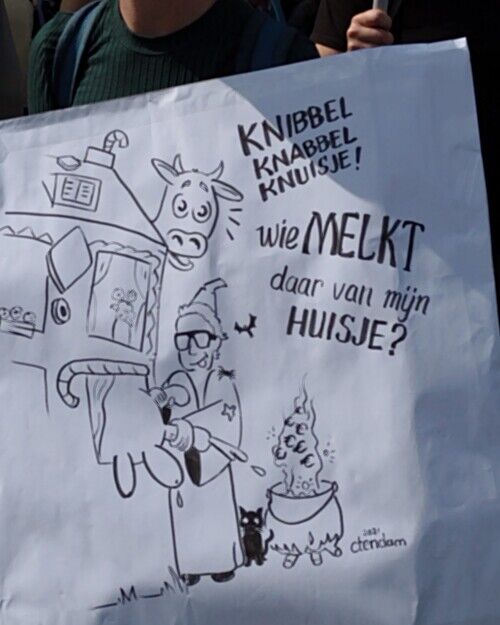 KNIBBEL
KNABBEL
KNUISJE!
wie MELKT
daar van mijn
HUISJE?
2021
ctendam